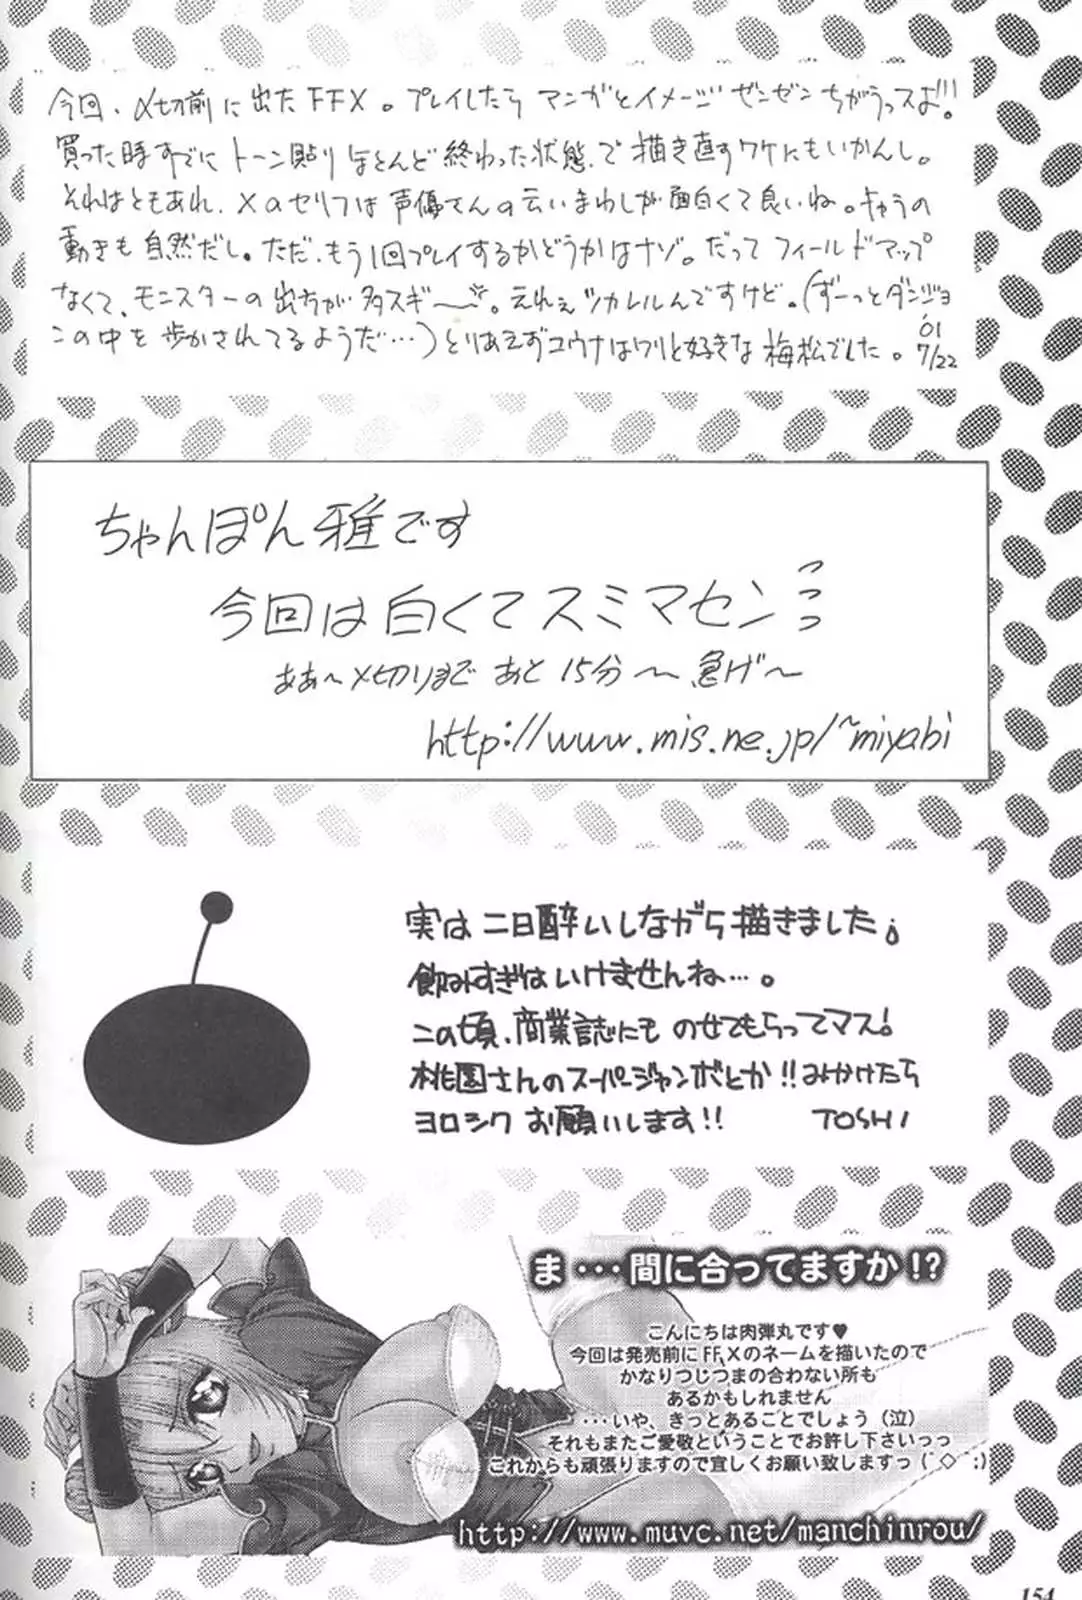 今回、〆切前に出たFFX。プレイしたら マンガとイメージ ゼンゼン ちがうっスよ!!!
買った時すでに トーン貼り ほとんど 終わった状態で 描き直すワケにもいかんし。
それはともあれ、Xのセリフは 声優さんの 云いまわしが 面白くて良いね。キャラの
動きも 自然だし。ただ、もう1回プレイするかどうかはナゾ。だって フィールドマップ
なくて、モンスターの 出方が 多スギ〜。えれぇ ツカレルんですけど。(ずーっとダンジョ
ンの中を 歩かされてるようだ…)とりあえずユウナはワリと好きな 梅松でした。 '01 7/22
ちゃんぽん雅です
今回は白くてスミマセンッッッ
ああ〜〆切りまで あと 15分〜急げ〜
http://www.mis.ne.jp/~miyabi
実は 二日酔いしながら描きました
飲みすぎは いけませんね…。
この頃、商業誌にも のせてもらってマス!
桃園さんのスーパージャンボとか!!みかけたら
ヨロシク お願いします!! TOSHI
ま・・・間に合ってますか!?
こんにちは肉弾丸です♥
今回は発売前にFF,Xのネームを描いたので
かなりつじつまの合わない所も
あるかもしれません
・・・いや、きっとあることでしょう(泣)
それもまたご愛敬ということでお許し下さいっっ
これからも頑張りますので宜しくお願い致しますっ(´◇｀;)
http://www.muvc.net/manchinrou/
154